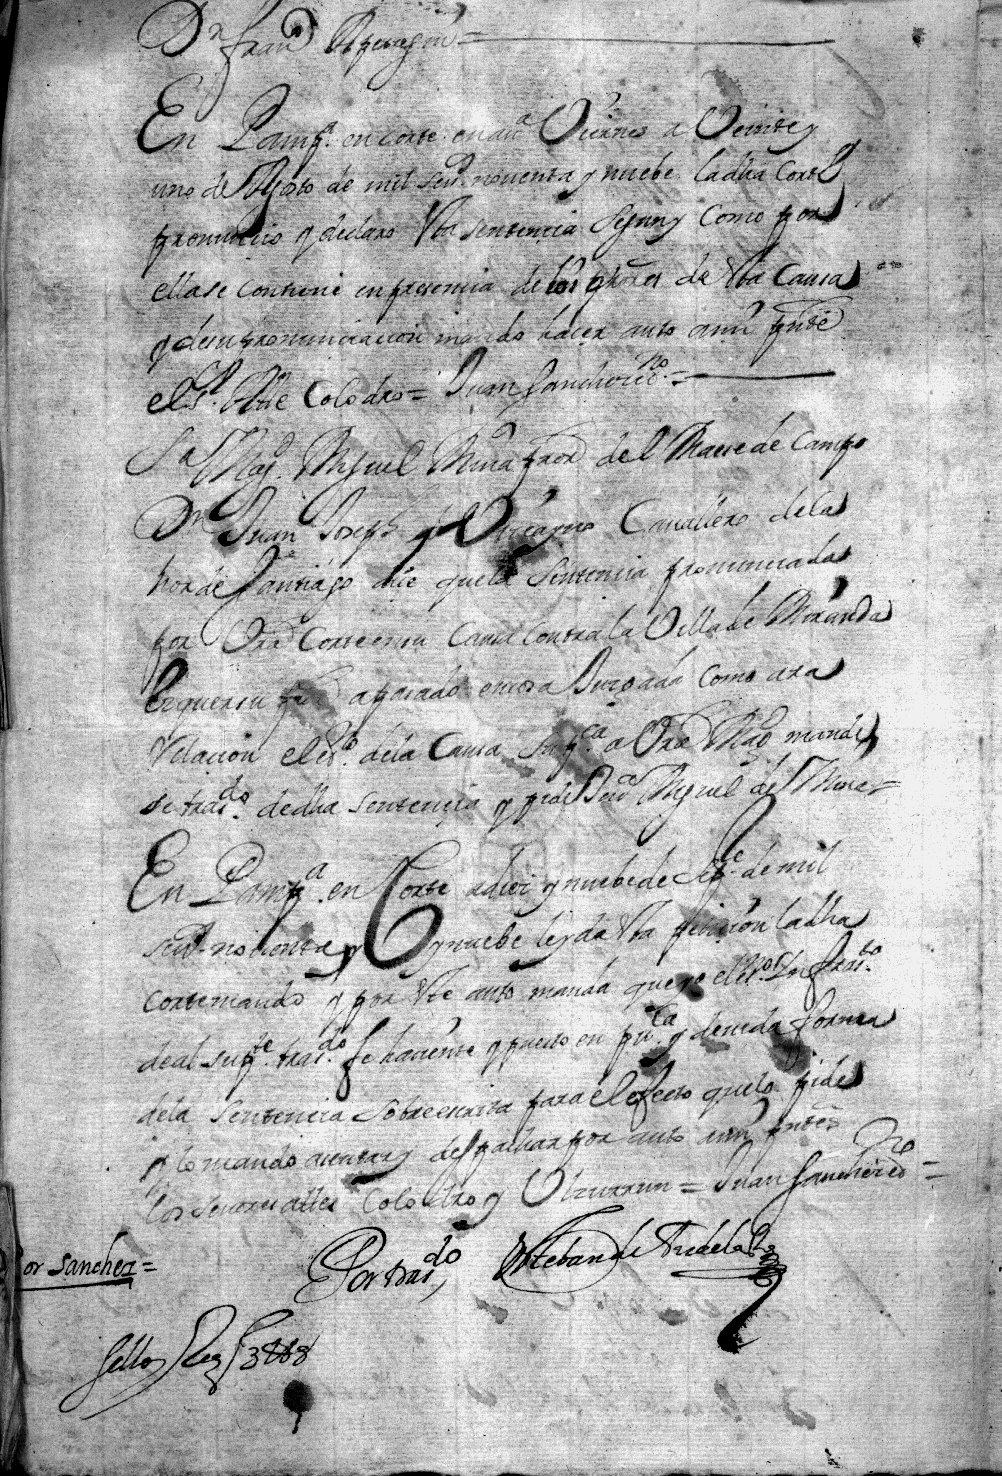 Dn Franco Aperregui =
En Pampa. en Corte en auda Viernes a Veinte y
uno de Agosto de mil seis. nouenta y nuebe la dha Corte
pronuncio y declaro Vta sentencia Segun y Como por
ella se contiene en presencia de los pñores de Vta Causa
y de su pronunciacion mando hacer auto a mi pnte
el Sr. Alle Colodro = Juan Sanchez no. =
Sa. Mag. Miguel Mina pror del Maese de Campo
Dn Juan Joseph de Vizcayno Cauallero de la
hor de Santiago dice que la sentencia pronunciada
por Vra Corte en su Causa contra la Villa de Miranda
passado en cosa Juzgada como ara
Relacion el esno. de la Causa Supca a Vra Magd mande
se trasdo. de dha sentencia y pide Jusa Miguel de Mina =
En Pampa. en Corte a diez y nuebe de Sepe. de mil
seis. nouenta y nuebe leyda Vta peticion la dha
Corte mando y por Vte auto manda que yo el esno Infraso
de al supte. trasdo. fe haciente y puesto en puca y deuida forma
de la sentencia sobreescrita para el efecto que lo pide
y lo mando asentar y despachar por auto a mi pntes
los señores alles Colodro y Vzurrun = Juan Sanchez esno =
or Sanchez =
Por trasdo, Esteban de Tudela
sello y Reg